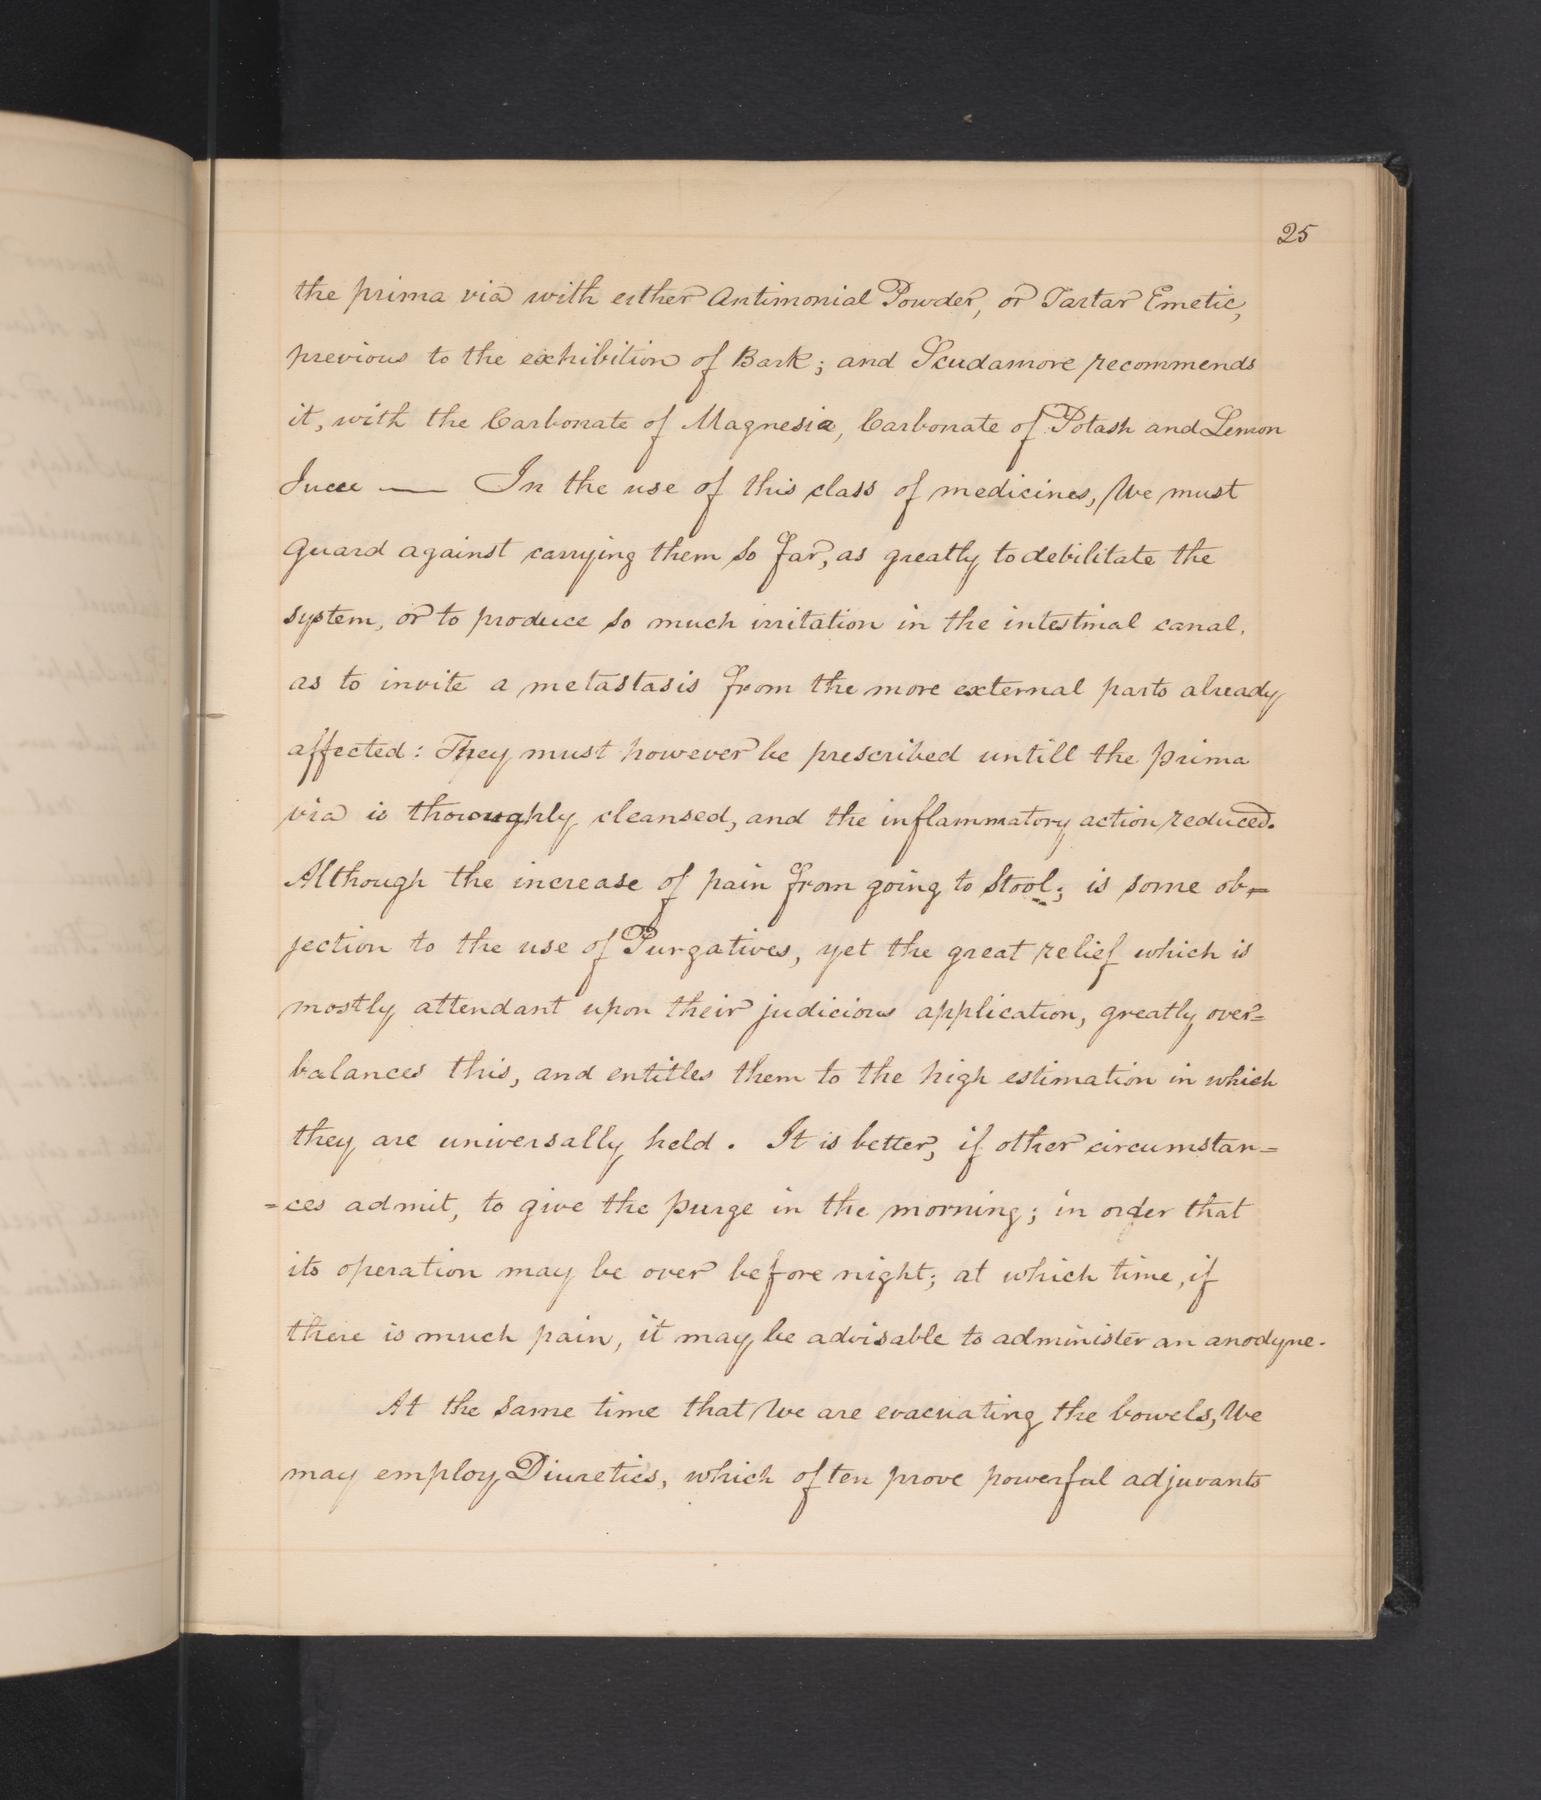 25
the prima via with either Antimonial Powder, or Tartar Emetic,
previous to the exhibition of Bark; and Scudamore recommends
it, with the Carbonate of Magnesia, Carbonate of Potash and Lemon
Juce — In the use of this class of medicines, We must
guard against carrying them so far, as greatly to debilitate the
system, or to produce so much irritation in the intestinal canal,
as to invite a metastasis from the more external parts already
affected: They must however be prescribed untill the prima
via is thoroughly cleansed, and the inflammatory action reduced.
Although the increase of pain from going to stool; is some ob=
jection to the use of Purgatives, yet the great relief which is
mostly attendant upon their judicious application, greatly over=
balances this, and entitles them to the high estimation in which
they are universally held. It is better, if other circumstan=
=ces admit, to give the purge in the morning; in order that
its operation may be over before night; at which time, if
there is much pain, it may be advisable to administer an anodyne.
At the same time that We are evacuating the bowels, We
may employ Diuretics, which often prove powerful adjuvants